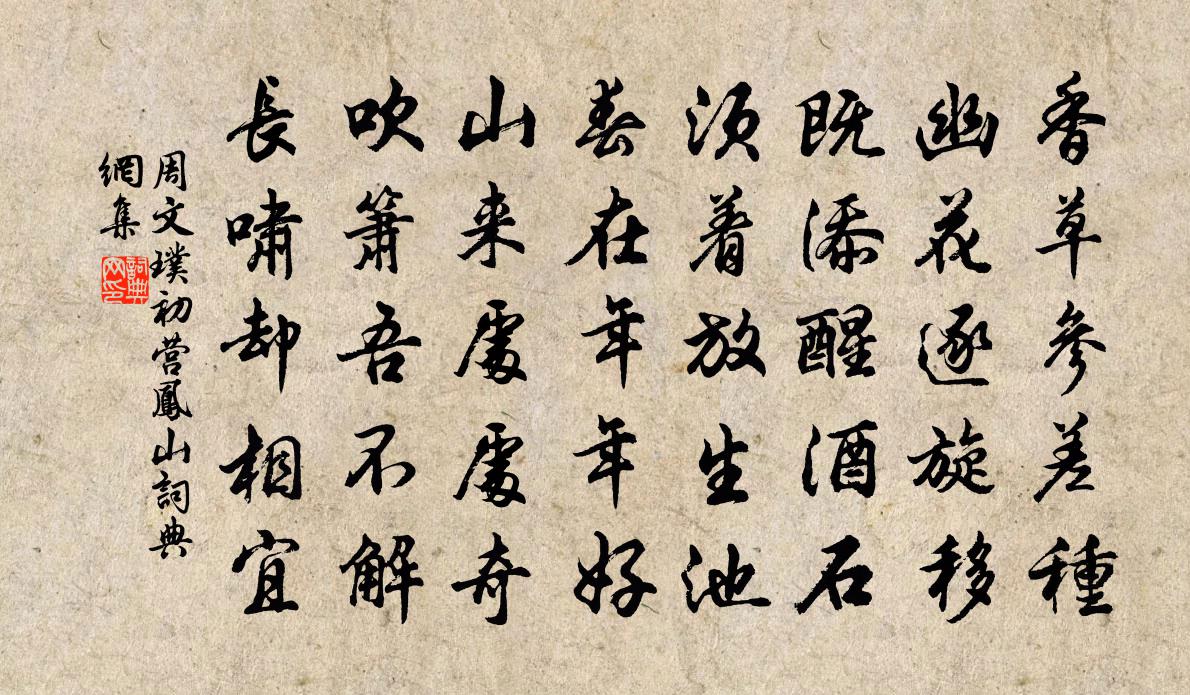 香草參差種
幽花逐旋移
既添醒酒石
須着放生池
春在年年好
山来處處奇
吹簫吾不解
長嘯却相宜
周文璞初营鳳山詞典
網集
詞典
网印